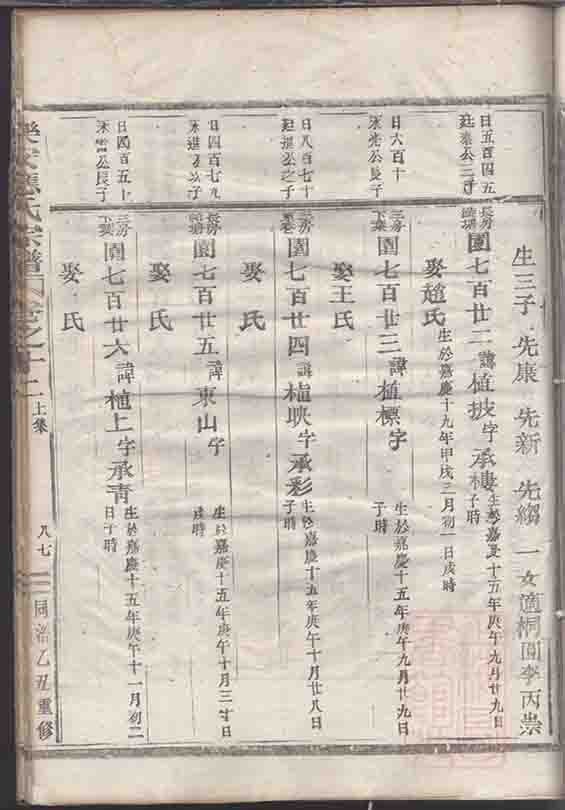 生三子 先康 先新 先縐 一女適桐園李丙祟
日五百四五
廷 公二子
長房
園七百廿二諱植披字承樓
生於嘉慶十五年庚午九月廿九日
子時
娶趙氏
生於嘉慶十九年甲戌三月初一日戌時
日六百十
公長子
三房
下葉
園七百廿三諱植標字
生於嘉慶十五年庚午九月廿九日
子時
娶王氏
日八百七十
廷 公之子
房
園七百廿四諱植映字承彩
生於嘉慶十五年庚午十月廿八日
子時
娶 氏
日四百七九
公 子
長房
園七百廿五諱東山字
生於嘉慶十五年庚午十月三十日
戌時
娶 氏
日四百五十
公長子
三房
下葉
園七百廿六諱植上字承青
生於嘉慶十五年庚午十一月初二
日子時
娶 氏
氏宗譜 卷之十二 上集 八七 同治乙丑重修